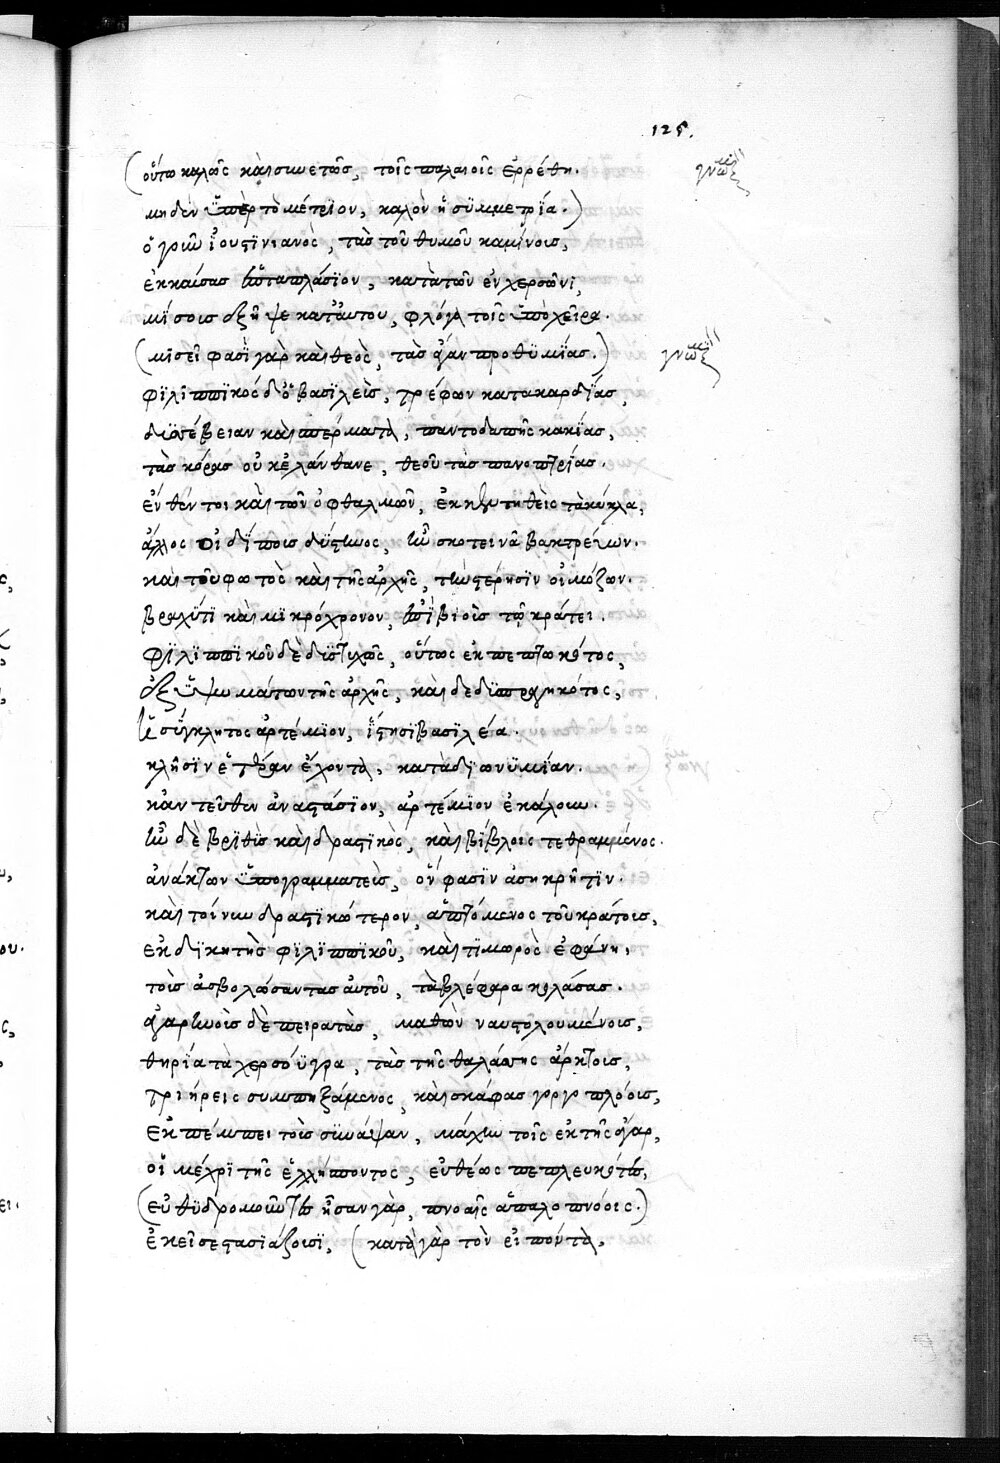 125.
(οὕτω καλῶς καὶ συνετῶς, τοῖς παλαιοῖς ἐρρέθη.
μηδὲν ὑπὲρ τὸ μέτριον, καλὸν ἡ συμμετρία.)
ὁ γοῦν Ἰουστινιανὸς, τὰς τοῦ θυμοῦ καμίνους,
ἐκκαύσας ἑπταπλάσιον, κατὰ τῶν ἐν χερσῶνι,
μίσους ἐξῆψε κατ' αὐτοῦ, φλόγα τοῖς ὑπὸ χεῖρα.
(μισεῖ φασὶ γὰρ καὶ θεὸς, τὰς ἄγαν προθυμίας.)
φιλιππικὸς δ' ὁ βασιλεὺς, τρέφων κατὰ καρδίας,
δυσσέβειαν καὶ σπέρματα, παντοδαπῆς κακίας,
τὰς κόρας οὐκ ἐλάνθανε, θεοῦ τὰς πανοπτρίας.
ἔνθέν τοι καὶ τῶν ὀφθαλμῶν, ἐκκεντηθεὶς τὰ κύκλα,
ἄλλος οἰδίπους δύστηνος, ἦν σκοτεινὰ βακτρεύων.
καὶ τοῦ φωτὸς καὶ τῆς ἀρχῆς, τὴν στέρησιν οἰμώζων.
βραχύ τι καὶ μικρόχρονον, ἐπιβιοὺς τῷ κράτει.
φιλιππικοῦ δὲ δυστυχῶς, οὕτως ἐκπεπτωκότος,
ἐξ ὑψωμάτων τῆς ἀρχῆς, καὶ δεδυσπραγηκότος,
ἡ σύγκλητος ἀρτέμιον, ἵστησι βασιλέα.
κλῆσιν ἑτέραν ἔχοντα, κατὰ διωνυμίαν.
κἀντεῦθεν ἀναστάσιον, ἀρτέμιον ἐκάλουν.
ἦν δὲ βριθὺς καὶ δραστικὸς, καὶ βίβλοις τεθραμμένος.
ἀνάκτων ὑπογραμματεὺς, ὅν φασιν ἀσηκρῆτιν.
καὶ τοίνυν δραστικώτερον, ἁπτόμενος τοῦ κράτους,
ἐκδικητὴς φιλιππικοῦ, καὶ τιμωρὸς ἐφάνη,
τοὺς ἀσβολώσαντας αὐτοῦ, τὰ βλέφαρα κολάσας.
ἀγαρηνοὺς δὲ πειρατὰς, μαθὼν ναυστολουμένους,
θηρία τὰ χερσόϋγρα, τὰς τῆς θαλάσσης ἄρκτους,
τριήρεις συμπηξάμενος, καὶ σκάφας γοργοπλόους,
ἐκπέμπει τοὺς συνάψαντας, μάχην τοῖς ἐκ τῆς ἄγαρ,
οἳ μέχρι τῆς ἑλλήσποντος, εὐθέως πεπλευκότες,
(εὐθυδρομοῦντες ἦσαν γὰρ, πνοαῖς ἁπαλοπνόοις.)
ἐκεῖσε στασιάζουσι, (κατὰ γὰρ τὸν εἰπόντα,